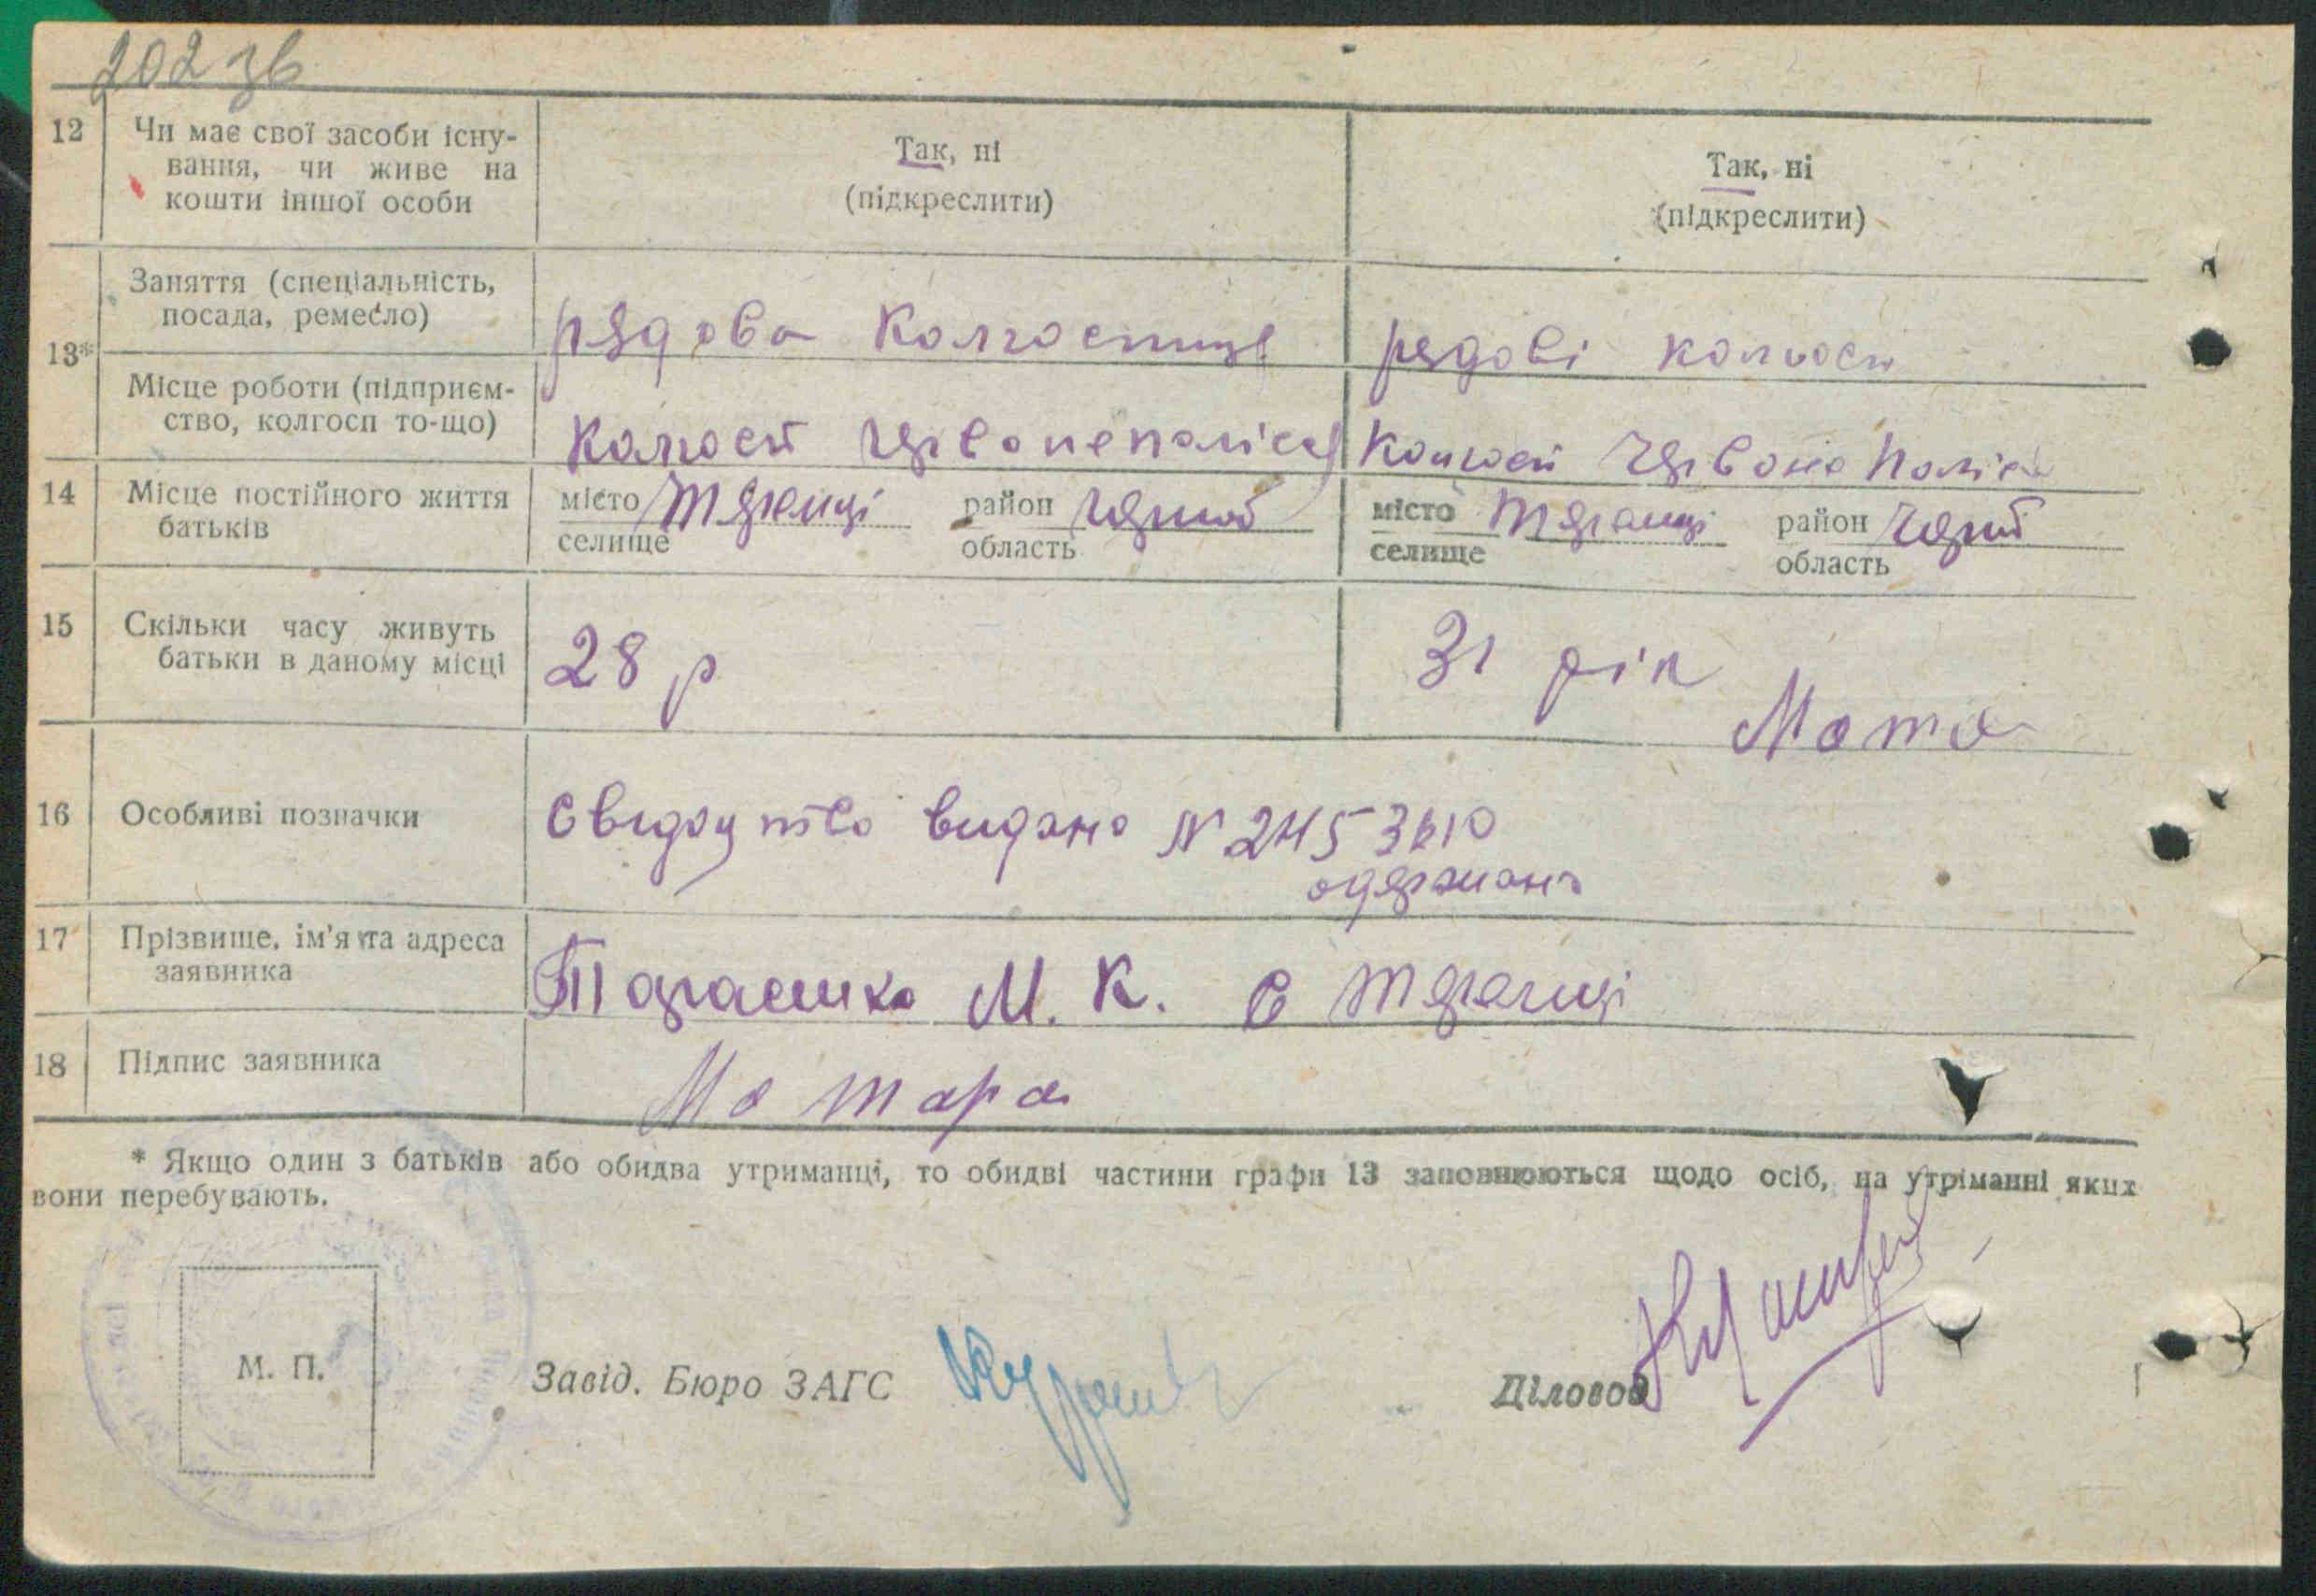 202 зв
12 Чи має свої засоби існу- Так, ні Так, ні
вання, чи живе на (підкреслити) (підкреслити)
кошти іншої особи
13* Заняття (спеціальність, рядова Колгоспиця рядові колгосп
посада, ремесло)
Місце роботи (підприєм- Колгосп Червоне полісся Колгосп Червоне Поліся
ство, колгосп то-що)
14 Місце постійного життя місто район місто район
батьків селище область селище область
15 Скільки часу живуть 28 р 31 рік
батьки в даному місці
16 Особливі позначки видано №
одержано
17 Прізвище, ім'я та адреса М. К. с
заявника
18 Підпис заявника Мотара
* Якщо один з батьків або обидва утриманці, то обидві частини графи 13 заповнюються щодо осіб, на утріманні яких
вони перебувають.
М. П.
Завід. Бюро ЗАГС Діловод